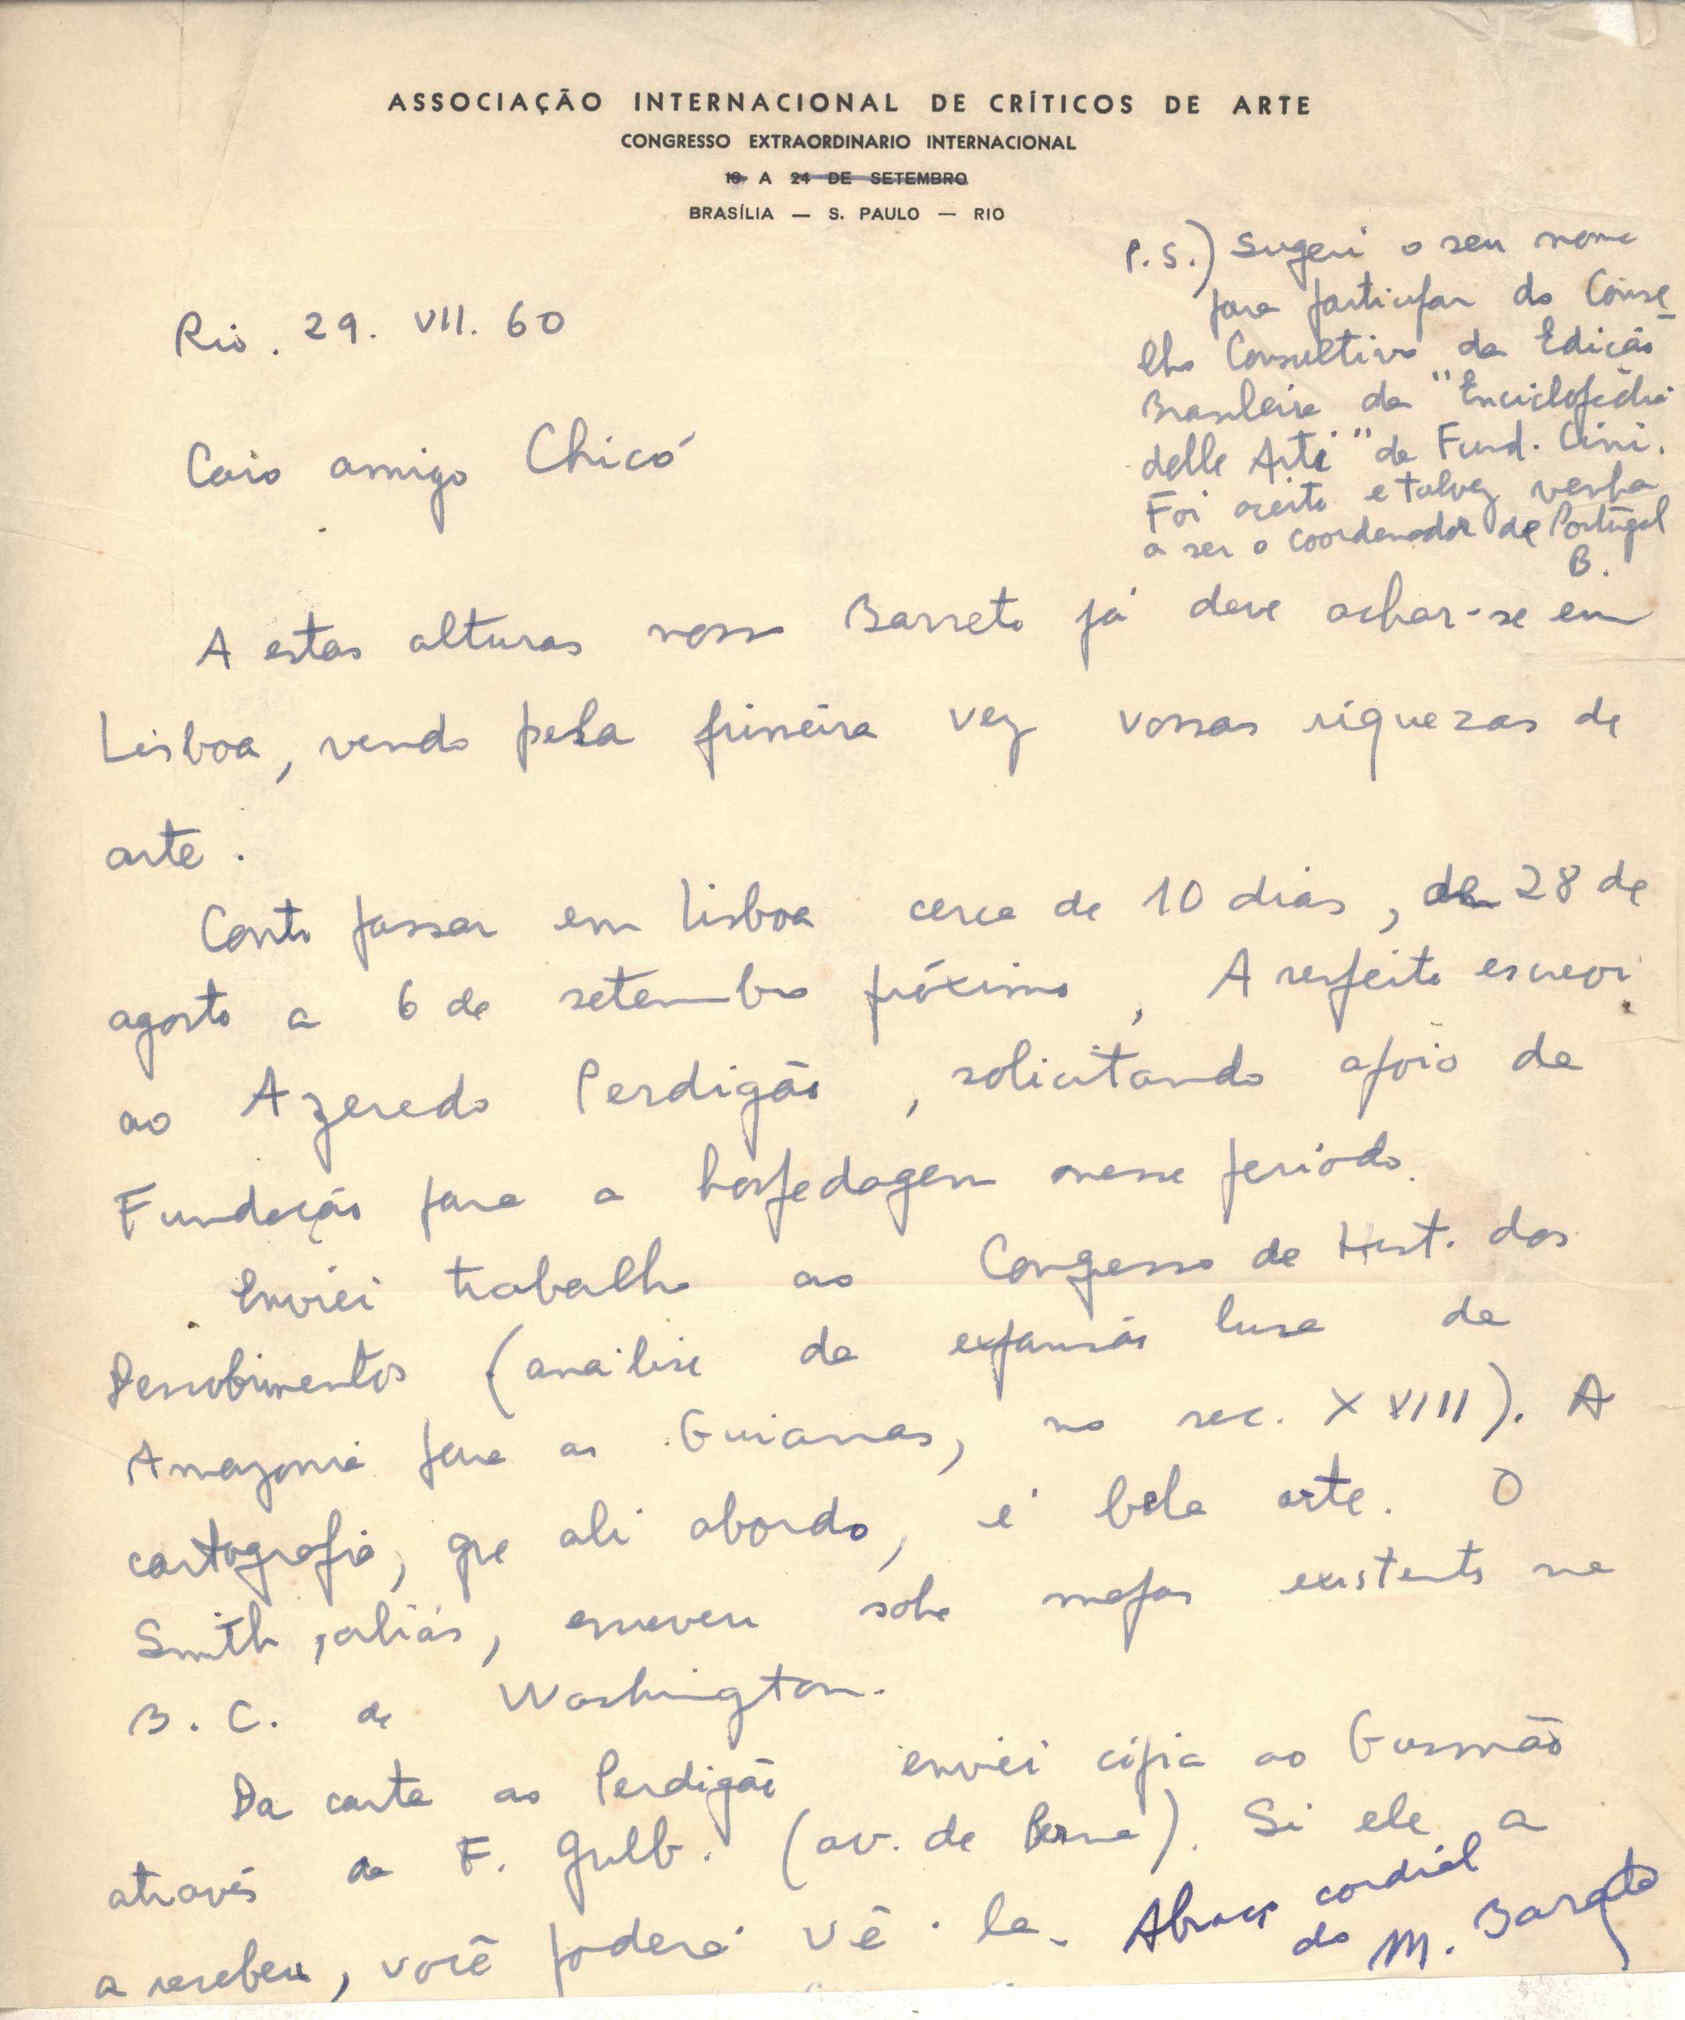 ASSOCIAÇÃO INTERNACIONAL DE CRÍTICOS DE ARTE
CONGRESSO EXTRAORDINARIO INTERNACIONAL
19 A 24 DE SETEMBRO
BRASÍLIA — S. PAULO — RIO
P.S.) Sugeri o seu nome
para participar do Conse
lho Consultivo da Edição
Brasileira da "Enciclopédia
delle Arti" da Fund. Cini.
Foi aceito e talvez venha
a ser o coordenador de Portugal
B.
Rio. 29. VII. 60
Caio amigo Chicó
A estas alturas nosso Barreto já deve achar-se em
Lisboa, vendo pela primeira vez vossas riquezas de
arte.
Conto passar em Lisboa cerca de 10 dias, de 28 de
agosto a 6 de setembro próximo, A respeito escrevi
ao Azeredo Perdigão, solicitando apoio da
Fundação para a hospedagem nesse periodo.
Enviei trabalho ao Congresso de Hist. dos
Descobrimentos (analise da expansão lusa da
Amazonia para as Guianas, no sec. XVIII). A
cartografia, que ali abordo, é bela arte. O
Smith, aliás, escreveu sobre mapas existents na
B. C. de Washington.
Da carta ao Perdigão enviei cópia ao Gusmão
através da F. Gulb. (av. de Berna). Si ele a
a recebeu, você poderá vê-la. Abraço cordial
do M. Barata